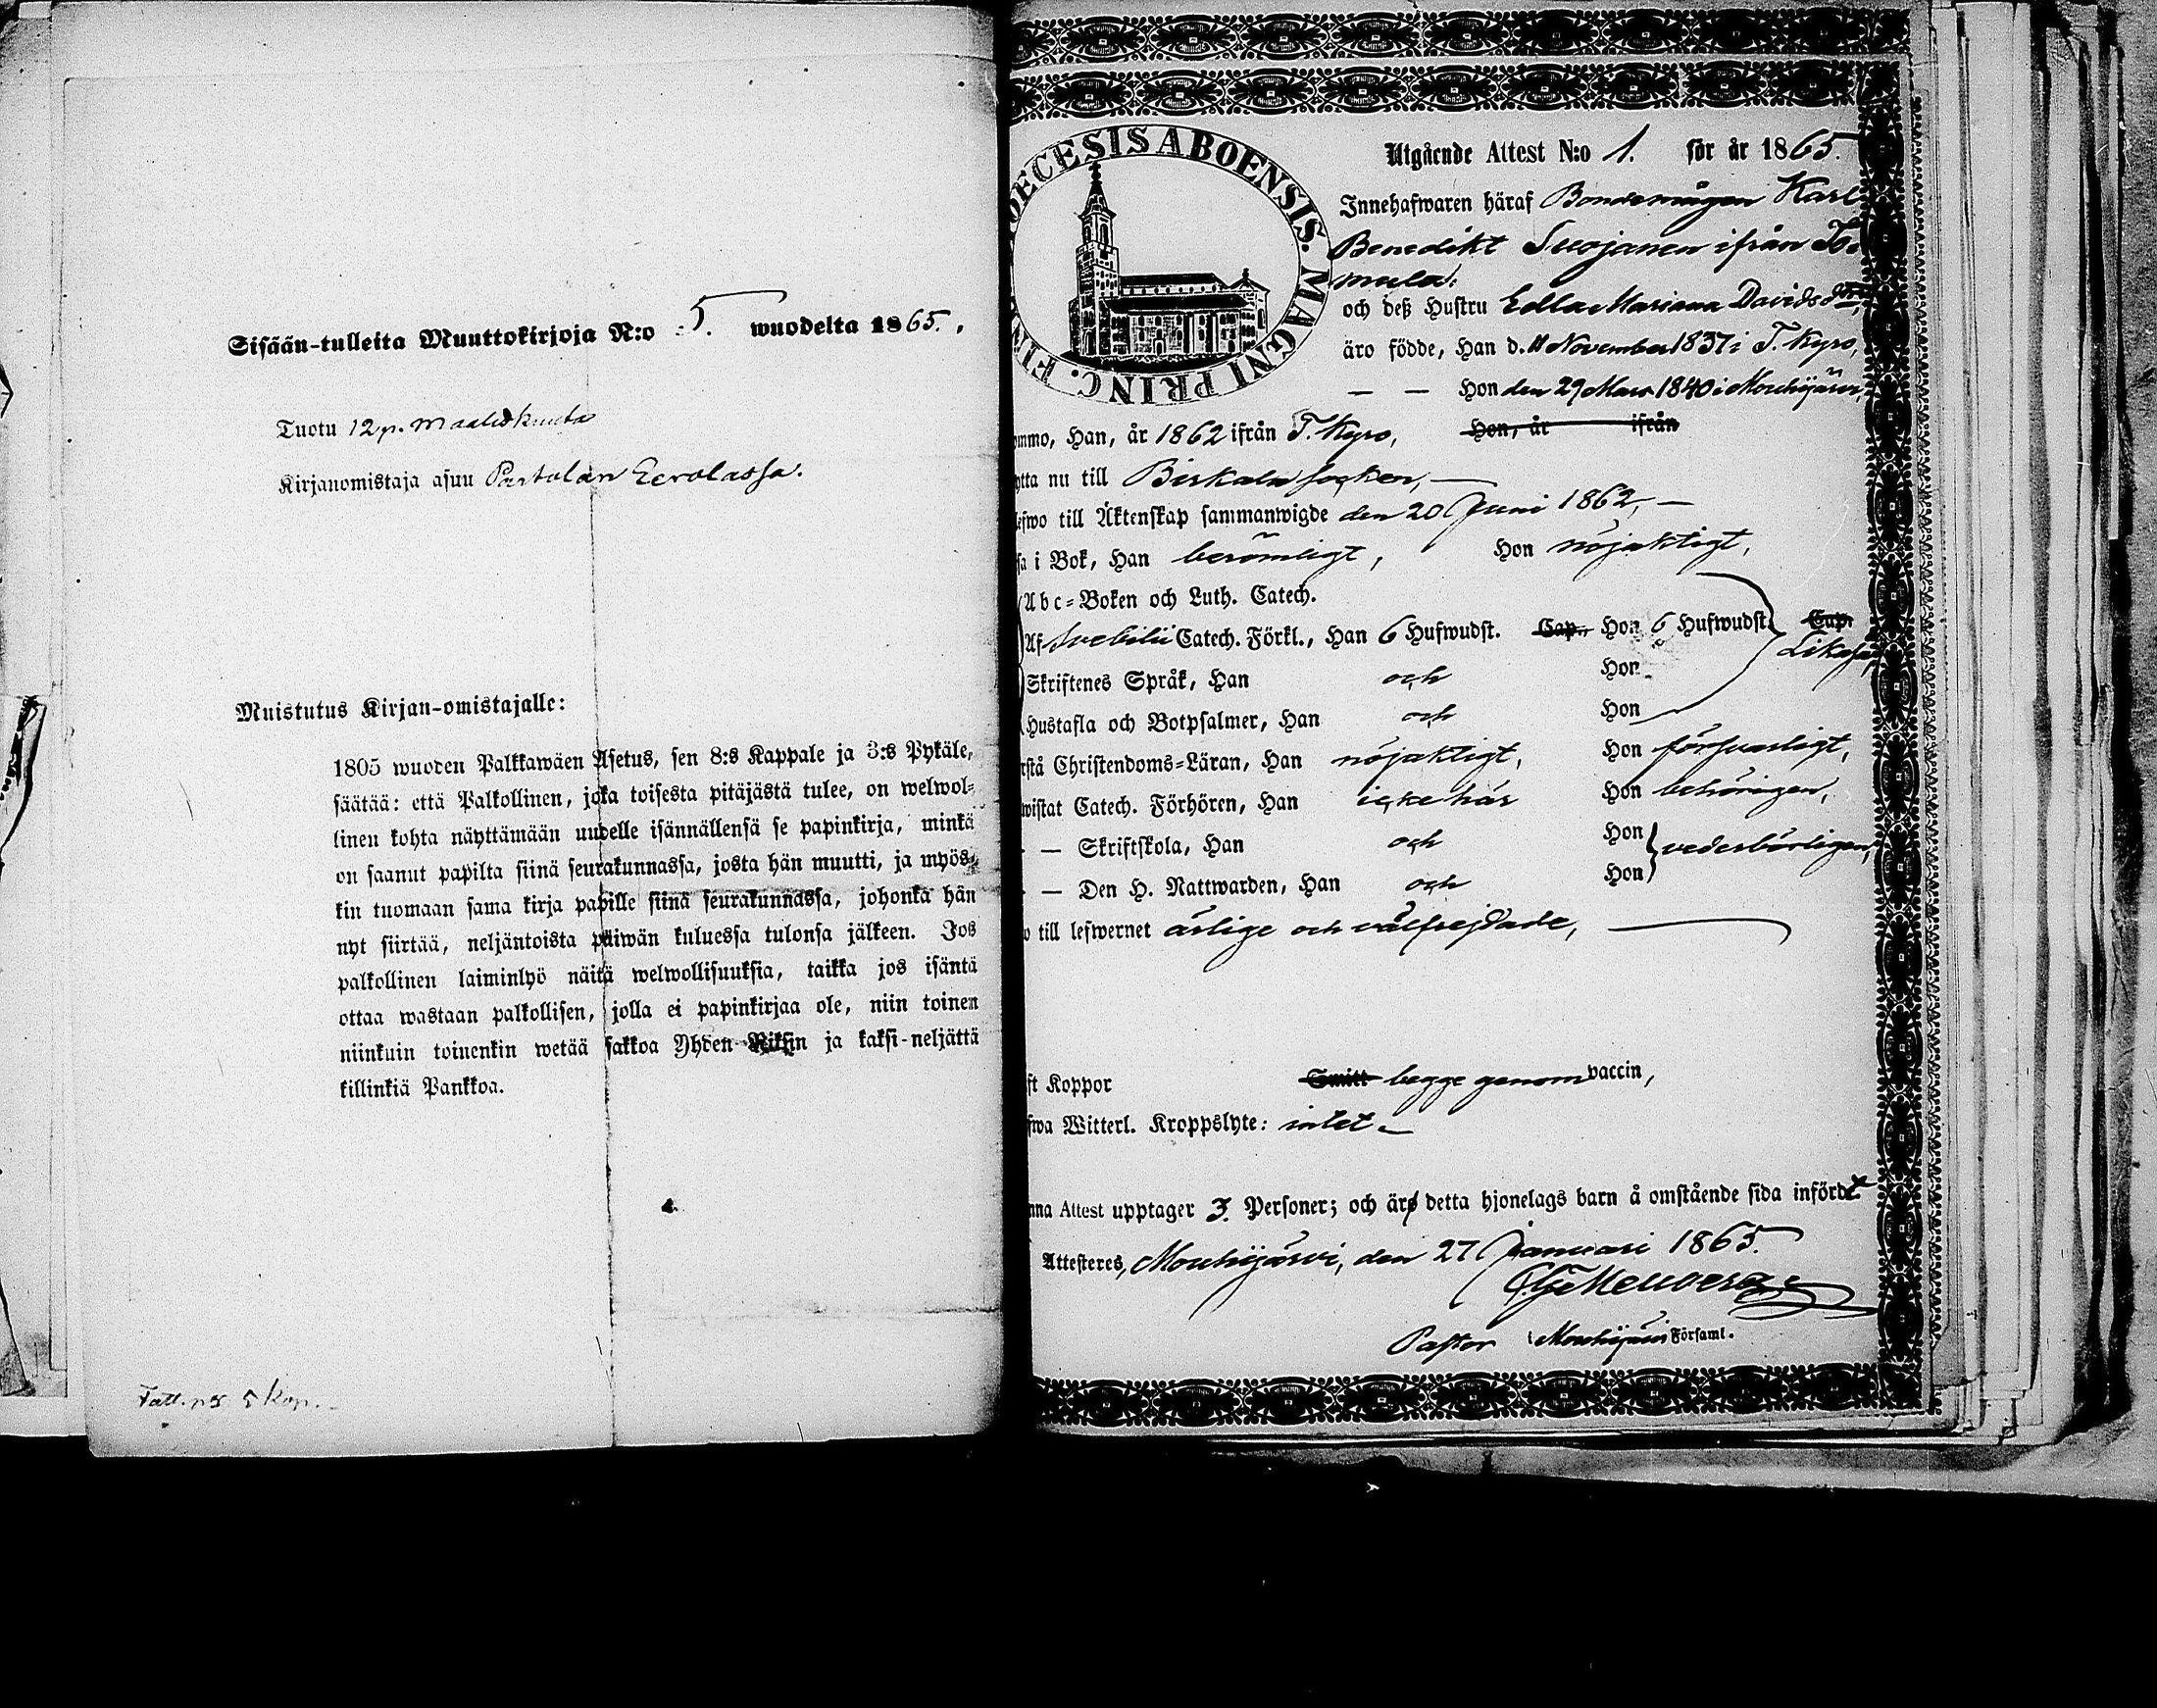 Sisään-tulleita Muuttokirjoja N:o 5. wuodelta 1865.
Tuotu 12 p. Maaliskuuta
Kirjanomistaja asuu Partolan Eerolassa.
Muistutus Kirjan-omistajalle:
1805 wuoden Palkkawäen Asetus, sen 8:s Kappale ja 3:s Pykäle,
säätää: että Palkollinen, joka toisesta pitäjästä tulee, on welwol-
linen kohta näyttämään uudelle isännällensä se papinkirja, minkä
on saanut papilta siinä seurakunnassa, josta hän muutti, ja myös-
kin tuomaan sama kirja papille siinä seurakunnassa, johonka hän
nyt siirtää, neljäntoista päiwän kuluessa tulonsa jälkeen. Jos
palkollinen laiminlyö näitä welwollisuuksia, taikka jos isäntä
ottaa wastaan palkollisen, jolla ei papinkirjaa ole, niin toinen
niinkuin toinenkin wetää sakkoa Yhden Riksin ja kaksi-neljättä
killinkiä Pankkoa.
5 Kop.
DIOECESIS ABOENSIS. MAGNI PRINC. FINL
Utgående Attest N:o 1. för år 1865.
Innehafwaren häraf Bondemågen Karl
Benedikt Suojanen ifrån To-
mula.
och deß Hustru Edla Mariana Davidsdtr,
äro födde, Han d. 11 November 1837 i T. Kyro,
— — Hon den 29 Mars 1840 i Mouhijärvi,
ommo, Han, år 1862 ifrån T. Kyro, Hon, år ifrån
ytta nu till Birkala socken, —
lefwo till Äktenskap sammanwigde den 20 Juni 1862, —
sa i Bok, Han berömligt, Hon nöjaktigt,
Abc-Boken och Luth. Catech.
Af Svebilii Catech. Förkl., Han 6 Hufwudst. Cap., Hon 6 Hufwudst. Cap.
Likaså,
Skriftenes Språk, Han och Hon
Hustafla och Botpsalmer, Han och Hon
rstå Christendoms-Läran, Han nöjaktigt, Hon försvarligt,
wistat Catech. Förhören, Han icke här Hon behörigen,
— Skriftskola, Han och Hon
vederbörligen,
— Den H. Nattwarden, Han och Hon
o till lefwernet ärlige och välfrejdade, —
ft Koppor Smitt begge genom vaccin,
fwa Witterl. Kroppslyte: intet —
nna Attest upptager 3. Personer; och äro detta hjonelags barn å omstående sida införde.
Attesteres, Mouhijärvi, den 27 Januari 1865.
Pastor i Mouhijärvi Församl.